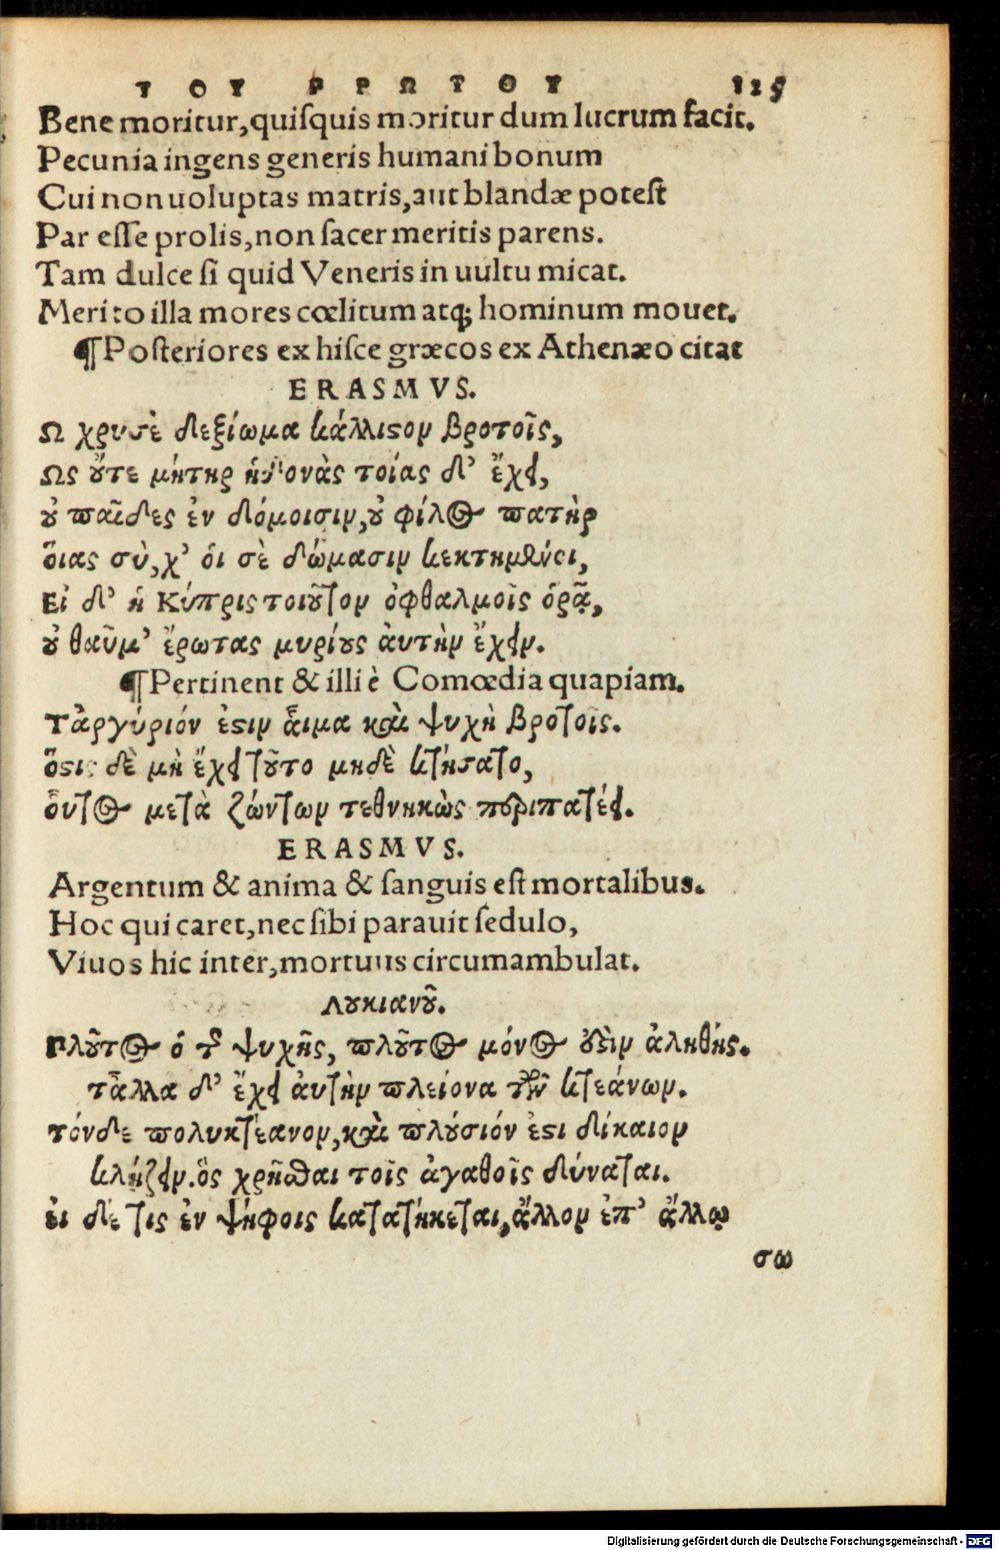 ΤΟΥ ΠΡΩΤΟΥ 125
Bene moritur, quiſquis moritur dum lucrum facit.
Pecunia ingens generis humani bonum
Cui non uoluptas matris, aut blandæ poteſt
Par eſſe prolis, non ſacer meritis parens.
Tam dulce ſi quid Veneris in uultu micat.
Merito illa mores cœlitum atq; hominum mouet.
¶Poſteriores ex hiſce græcos ex Athenæo citat
ERASMVS.
Ω χρυσὲ δεξίωμα κάλλιϛον βροτοῖς,
Ως ȣ̓́τε μήτηρ ἡδονὰς τοίας δ' ἔχει,
ȣ παῖδες ἐν δόμοισιν, ȣ φίλος πατὴρ
ὅιας σὺ, χ' ὁι σὲ δώμασιν κεκτημένοι,
Εἰ δ' ἡ Κύπρις τοιȣ͂τον ὀφθαλμοῖς ὁρᾷ,
ȣ θαῦμ' ἔρωτας μυρίȣς ἀυτὴν ἔχειν.
¶Pertinent & illi è Comœdia quapiam.
Τἀργύριόν ἐϛιν ἇιμα καὶ ψυχὴ βροτοῖς.
ὅϛις δὲ μὴ ἔχει τȣ͂το μηδὲ κτήσατο,
ὅυτος μετὰ ζώντων τεθνηκὼς περιπατέει.
ERASMVS.
Argentum & anima & ſanguis eſt mortalibus.
Hoc qui caret, nec ſibi parauit ſedulo,
Viuos hic inter, mortuus circumambulat.
Λȣκιανȣ͂.
Πλȣ͂τος ὁ τῆς ψυχῆς, πλȣ͂τος μόνος ἐϛὶν ἀληθής.
τἆλλα δ' ἔχει ἀυτὴν πλείονα τῶν κτεάνων.
Τόνδε πολυκτέανον, καὶ πλȣ́σιόν ἐϛι δίκαιον
κλῄζειν. ὃς χρῆσθαι τοῖς ἀγαθοῖς δύναται.
ἐι δέ τις ἐν ψήφοις κατατήκεται, ἄλλον ἐπ' ἄλλῳ
σω
Digitalisierung gefördert durch die Deutsche Forschungsgemeinschaft - DFG